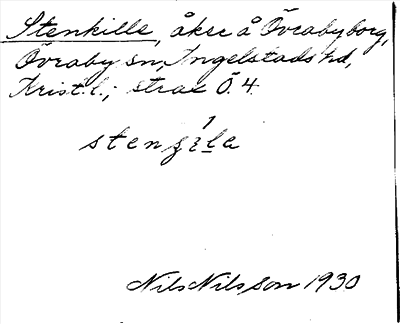 Stenkille, åker å Övrabyborg,
Övraby sn, Ingelstads hd,
Krist. l.; strax Ö. 4.
Nils Nilsson 1930